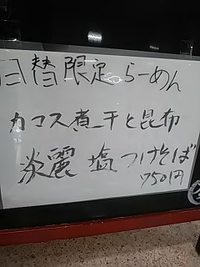 日替限定らーめん
カマス煮干と昆布
淡麗 塩つけそば
750円